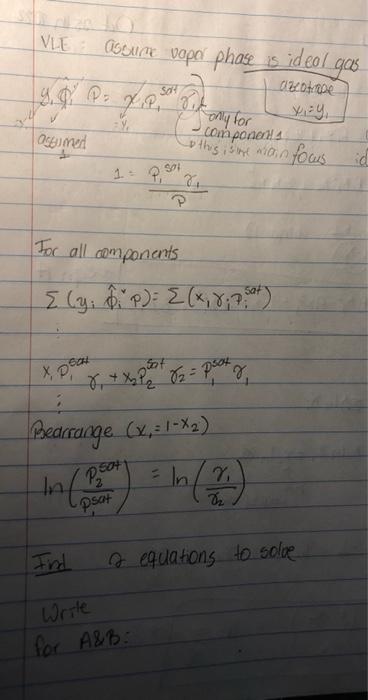 VLE: assume vapor phase is ideal gas
azeotrope
x₁=y₁
y₁ φ̂₁ᵛ P = x₁P₁ˢᵃᵗ γ₁
=y₁
only for
components 1
this is the main focus
assumed
1
1 = P₁ˢᵃᵗ γ₁ / P
For all components
Σ (yᵢ φ̂ᵢᵛ P) = Σ (xᵢ γᵢ Pᵢˢᵃᵗ)
⋮
x₁ P₁ˢᵃᵗ γ₁ + x₂ P₂ˢᵃᵗ γ₂ = P₁ˢᵃᵗ γ₁
⋮
Rearrange (x₁ = 1-x₂)
ln(P₂ˢᵃᵗ / P₁ˢᵃᵗ) = ln(γ₁ / γ₂)
2 equations to solve
Write
for A&B: